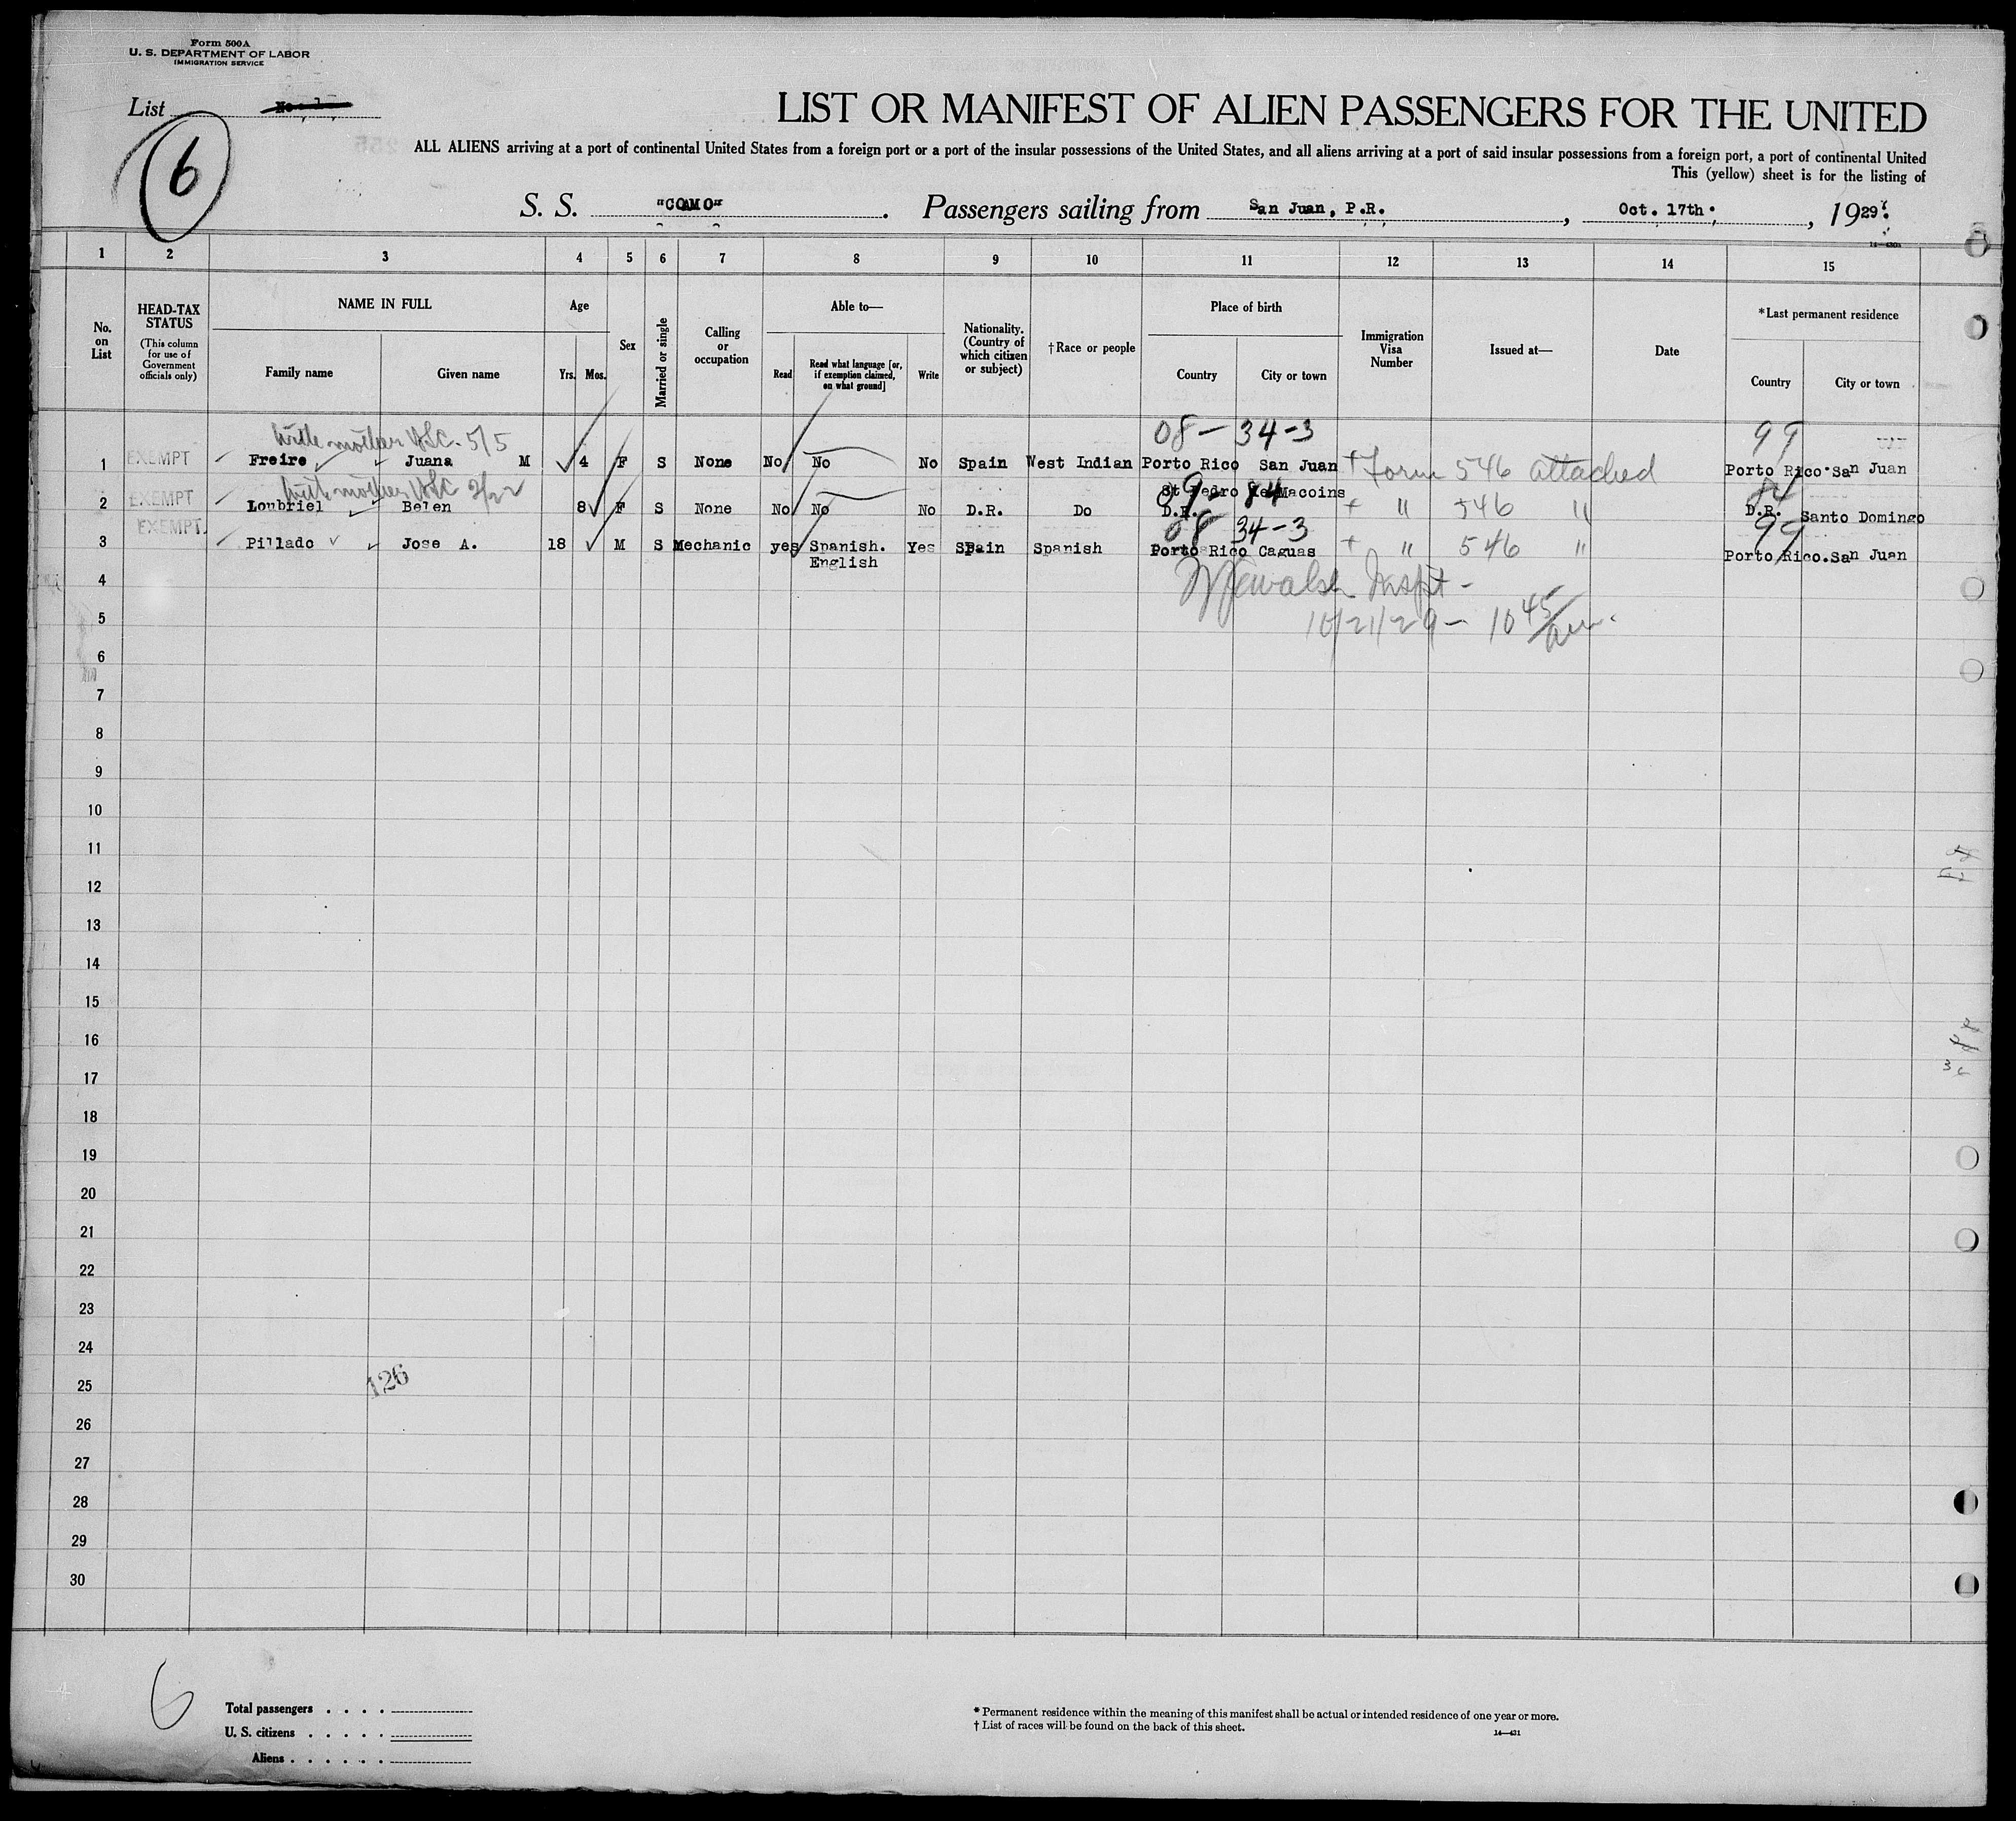 Form 500A
U. S. DEPARTMENT OF LABOR
IMMIGRATION SERVICE
List No. 1
6
LIST OR MANIFEST OF ALIEN PASSENGERS FOR THE UNITED
ALL ALIENS arriving at a port of continental United States from a foreign port or a port of the insular possessions of the United States, and all aliens arriving at a port of said insular possessions from a foreign port, a port of continental United
This (yellow) sheet is for the listing of
S. S. "COAMO". Passengers sailing from San Juan, P.R., Oct. 17th, 1929
1 2 3 4 5 6 7 8 9 10 11 12 13 14 15
No. on List
HEAD-TAX STATUS
(This column for use of Government officials only)
NAME IN FULL
Family name Given name
Age
Yrs. Mos.
Sex
Married or single
Calling or occupation
Able to—
Read
Read what language [or, if exemption claimed, on what ground]
Write
Nationality. (Country of which citizen or subject)
†Race or people
Place of birth
Country City or town
Immigration Visa Number
Issued at—
Date
*Last permanent residence
Country City or town
with mother USC. 5/5 08-34-3 99
1 EXEMPT Freire Juana M 4 F S None No No No Spain West Indian Porto Rico San Juan Form 546 attached Porto Rico San Juan
with mother USC 2/22 09-84 84
2 EXEMPT Loubriel Belen 8 F S None No No No D.R. Do D.R. St Pedro Macoins " 546 " D.R. Santo Domingo
08 34-3 99
3 EXEMPT Pillado Jose A. 18 M S Mechanic yes Spanish. English Yes Spain Spanish Porto Rico Caguas " 546 " Porto Rico. San Juan
4
10/21/29 - 10 45/am.
5
6
7
8
9
10
11
12
13
14
15
16
17
18
19
20
21
22
23
24
25
126
26
27
28
29
30
6
Total passengers . . . .
U. S. citizens . . . . .
Aliens . . . . . .
* Permanent residence within the meaning of this manifest shall be actual or intended residence of one year or more.
† List of races will be found on the back of this sheet.
14—431